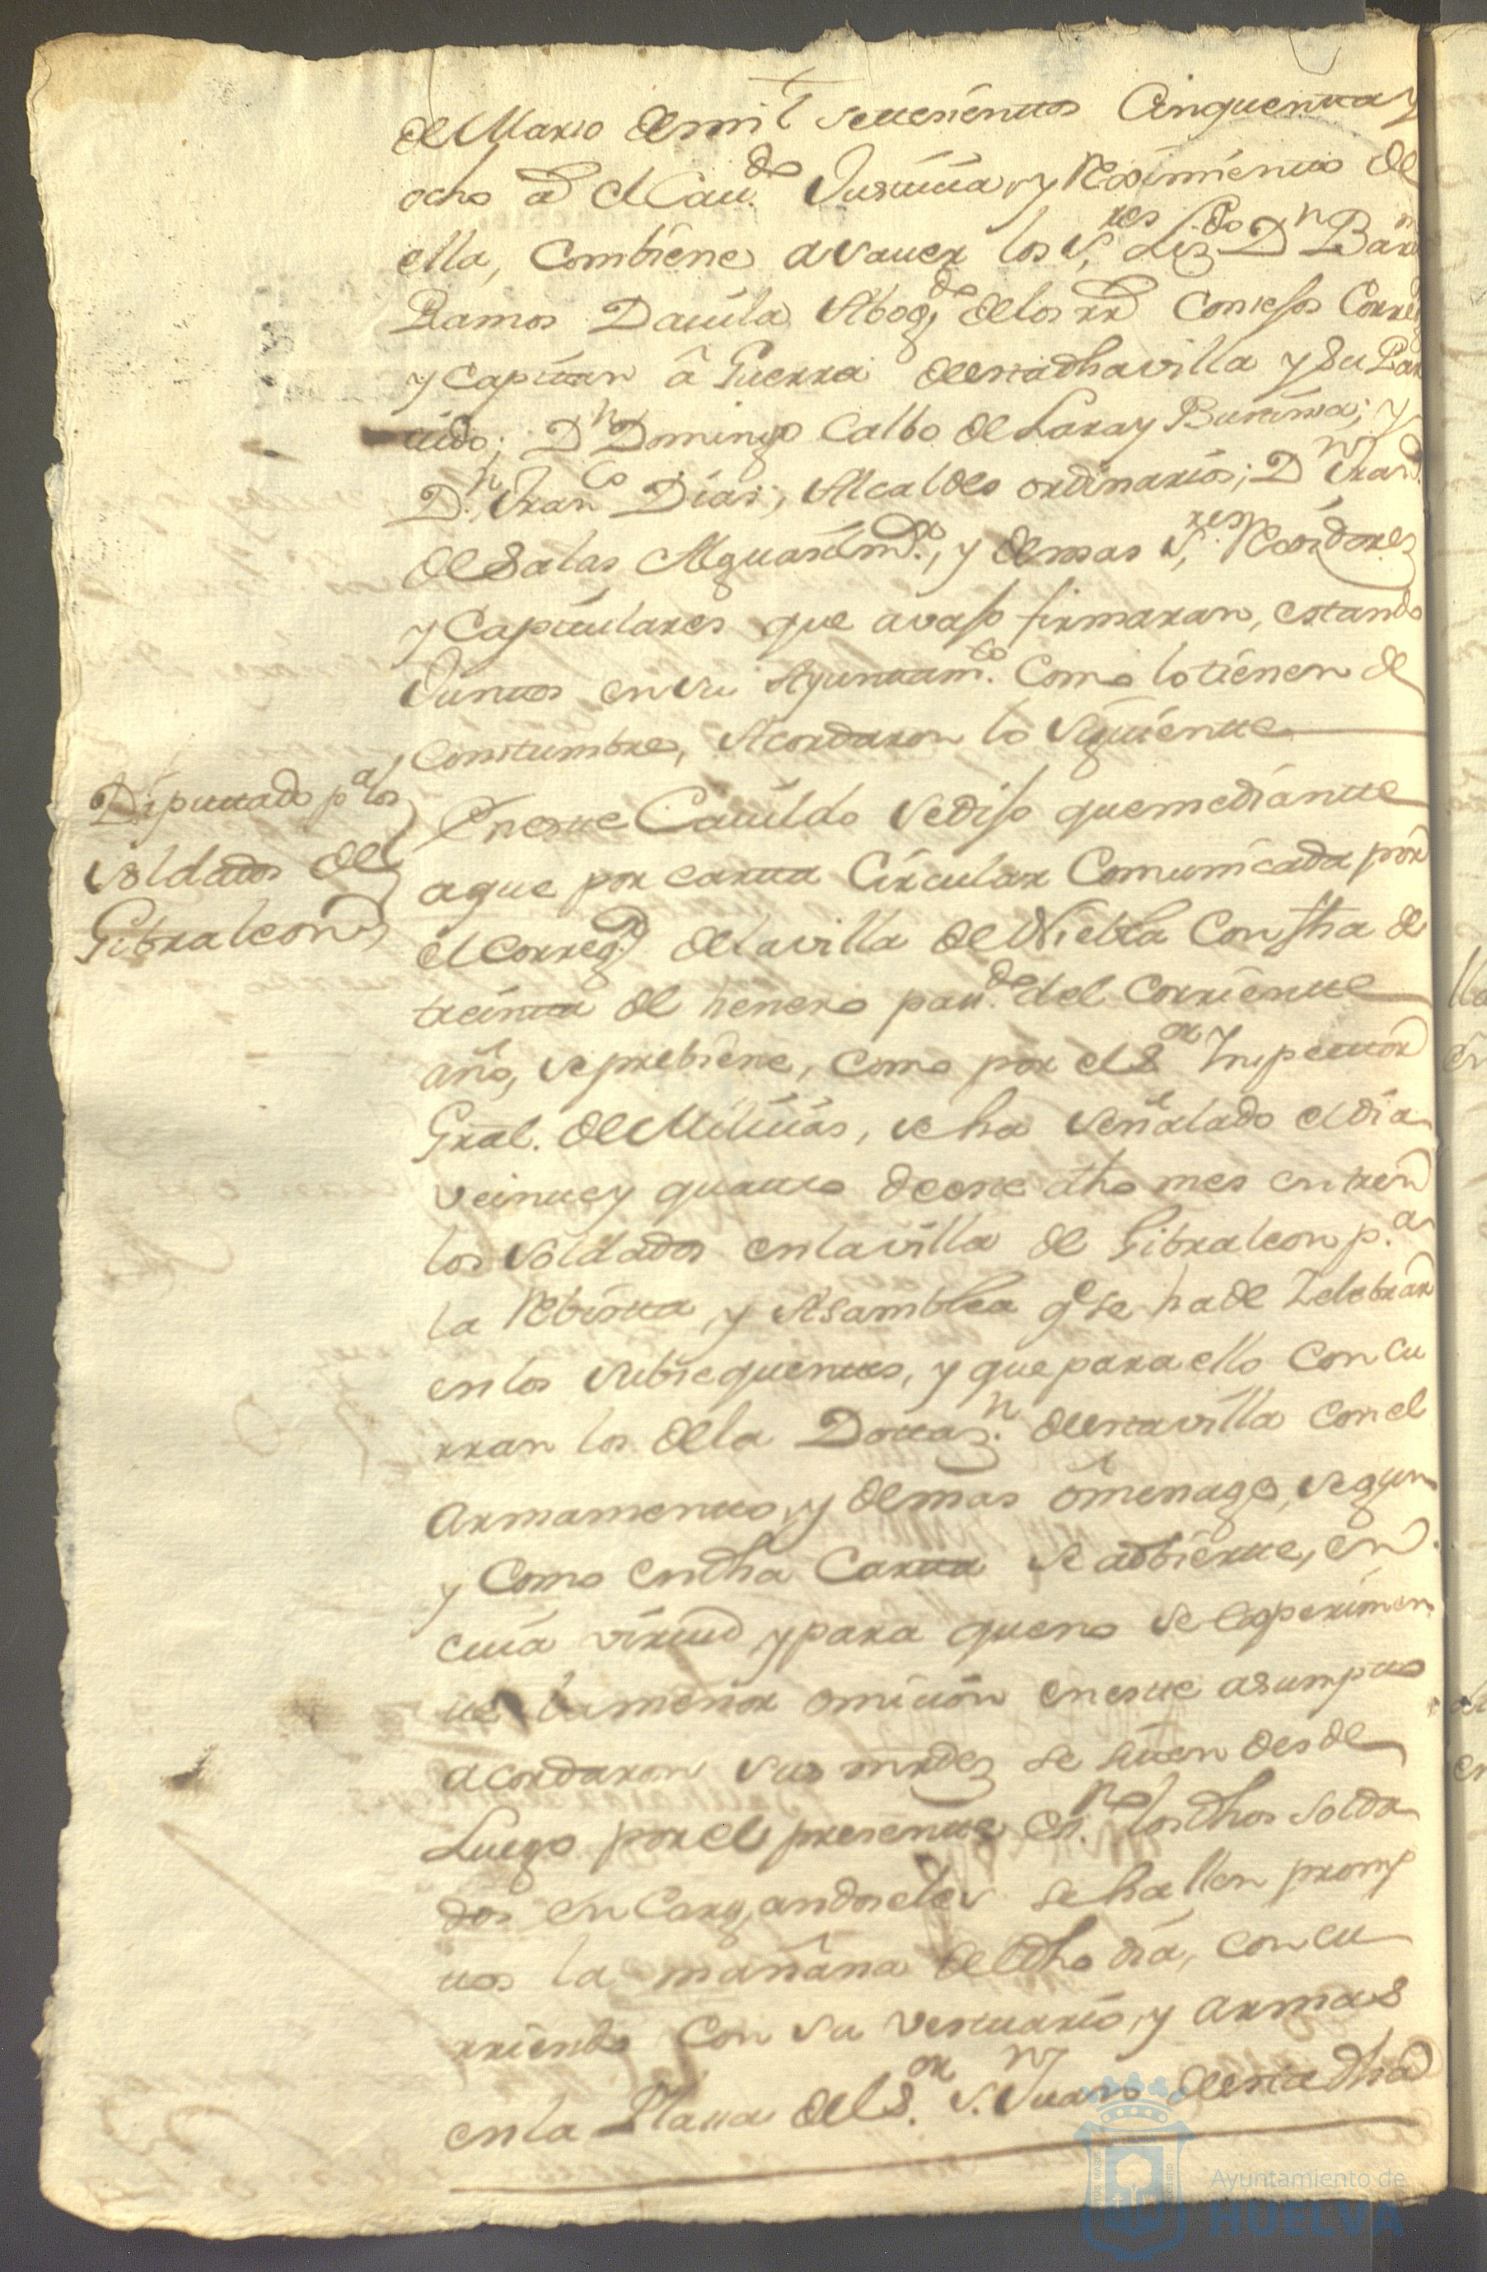 de Marzo de mil settesientos Cinquenta y
ocho a.d el Cav.do Justicia, y Reximiento de
ella, Combiene a saver los S.res Liz.do D.n Barm
Ramos Davila Abog.do de los rr.s Consejos Correg
y Capitan â Guerra de esta dha villa y su Par
tido; D.n Domingo Calbo de Lara y Buitima; y
D.n Fran.co Dias, Alcaldes ordinarios; D.n Fran.
de Salas Alguasil m.or, y demas S.res Rexidores
y Capitulares que avajo firmaran, estando
Juntos en su Ayuntam.to Como lo tienen de
Constumbre, Acordaron lo siguiente
Diputtado p.a los
soldados de
Gibraleon
En este Cavildo se dijo que mediante
a que por carta Circular Comunicada por
el Correg.r de la villa de Niebla Con fha de
treinta de henero pasa.do del corriente
año, se prebiene, como por el S.or Inspector
Gral. de Milicias, se ha señalado el dia
veinte y quatro de este dho mes entren
los soldados en la villa de Gibraleon p.a
la Rebista, y Asamblea q.e se ha de Zelebrar
en los subsequentes, y que para ello concu
rran los de la Dottaz.n de esta villa con el
armamento, y demas omenage, segun
y Como en dha Carta se adbierte, en
cuia virtud y para que no se experimen
te la menor omicion en este asumpto
acordaron sus mrdes se siten desde
Luego por el presente es.no los dhos solda
dos en Cargandoseles se hallen promp
tos la mañana del dho dia, concu
rriendo Con su vestuario, y armas
en la Plaza del S.or S.n Juan de esta dha
Ayuntamiento de
HUELVA